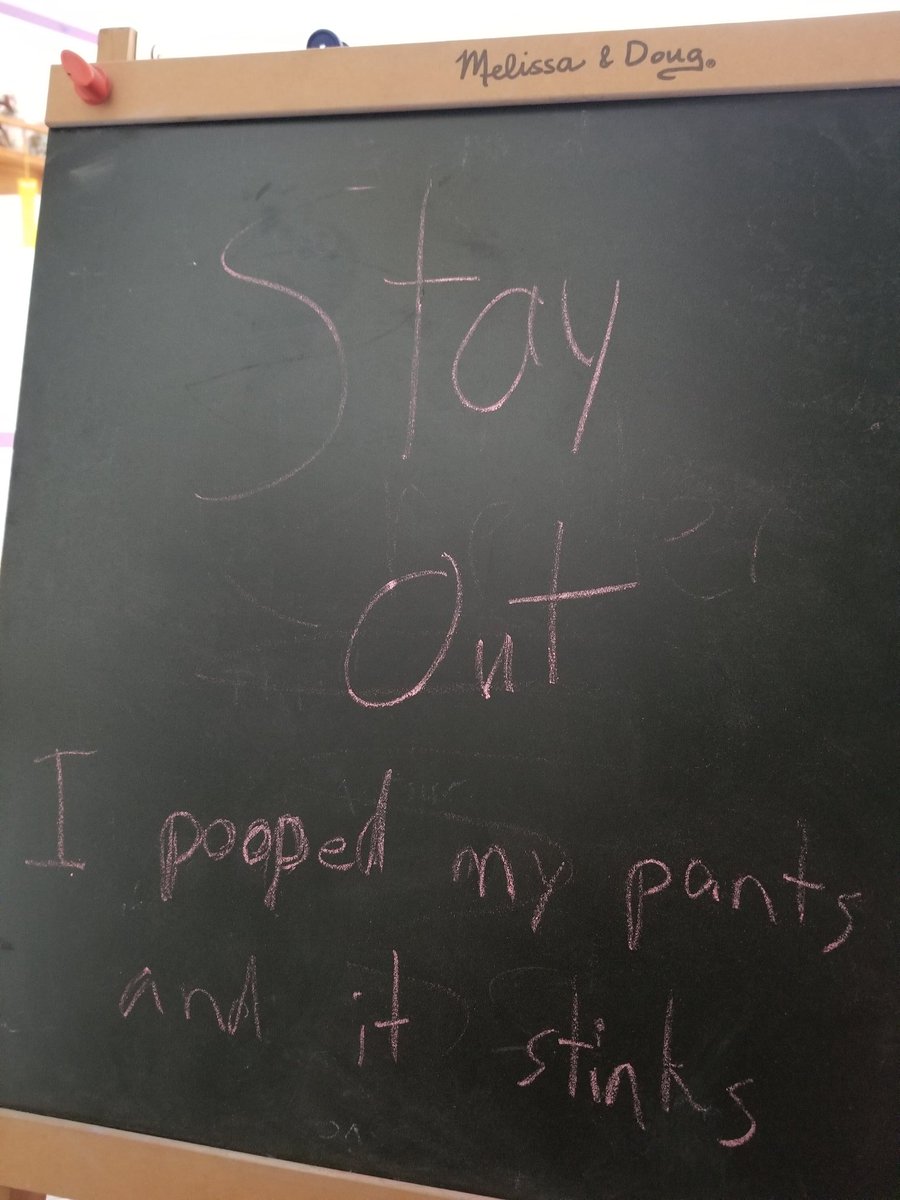 Melissa & Doug®
Stay
Out
I pooped my pants
and it stinks